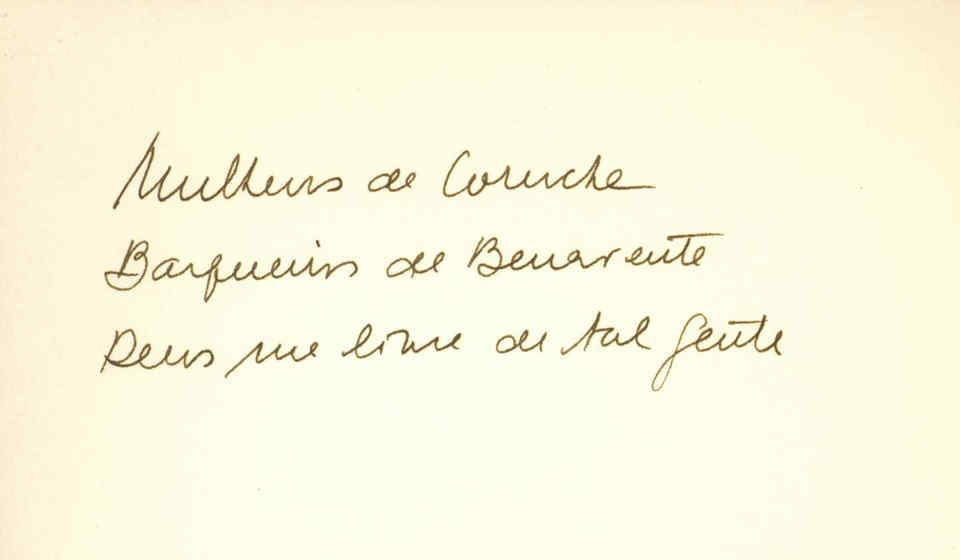 Mulheres de Coruche
Barqueiros de Benavente
Deus me livre de tal gente